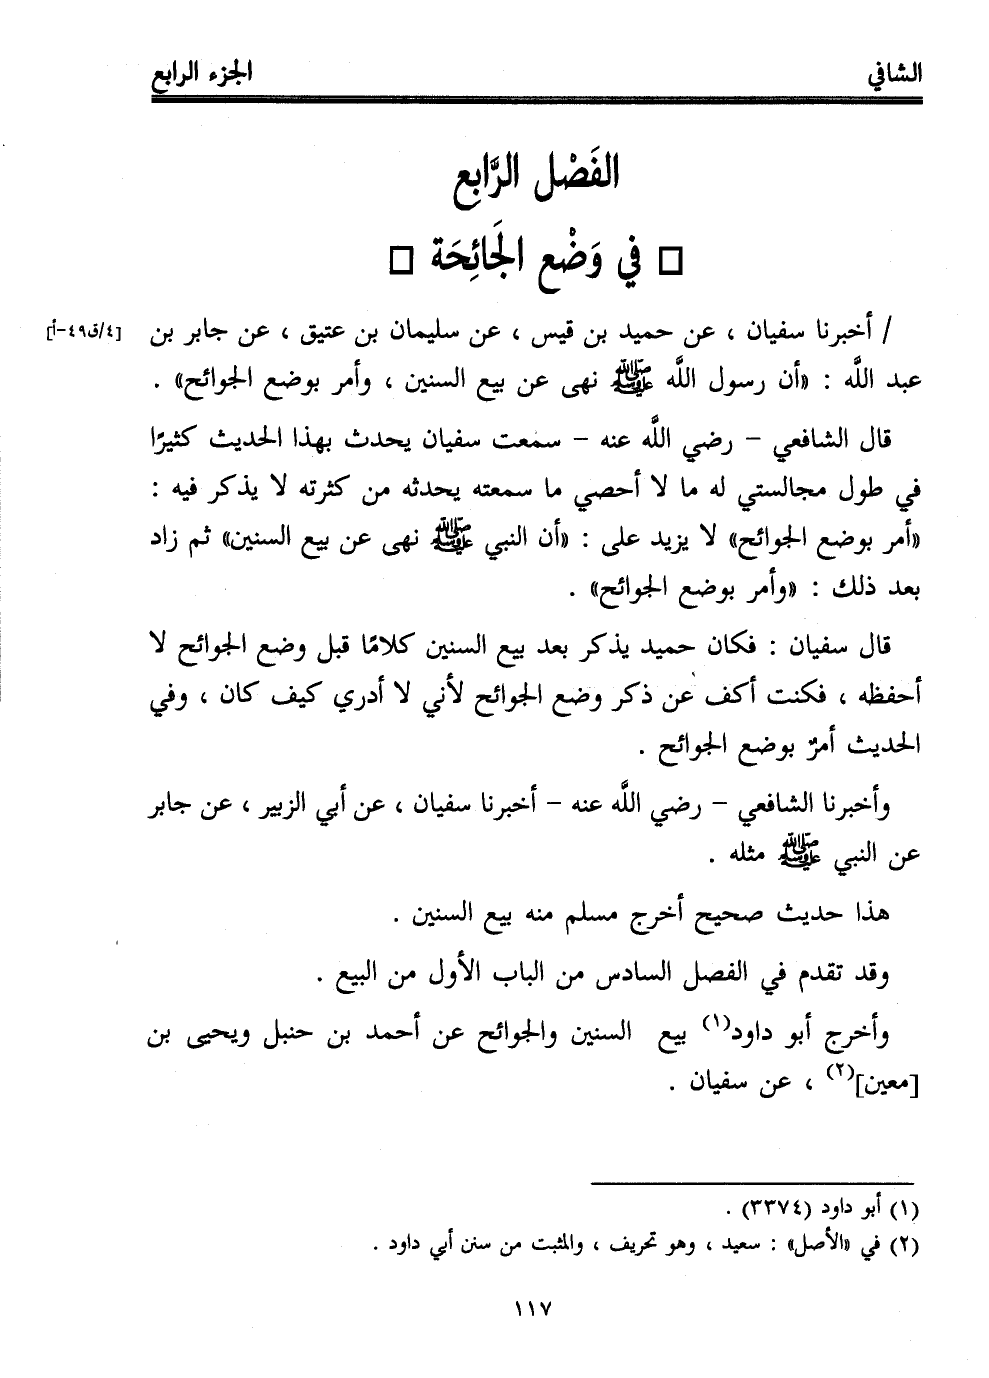 الشافي الجزء الرابع
الفَصْل الرَّابِع
□ في وَضْع الجَائِحَة □
/ أخبرنا سفيان ، عن حميد بن قيس ، عن سليمان بن عتيق ، عن جابر بن [٤/ق٤٩-أ]
عبد اللَّه : «أن رسول اللَّه ﷺ نهى عن بيع السنين ، وأمر بوضع الجوائح» .
قال الشافعي – رضي اللَّه عنه – سمعت سفيان يحدث بهذا الحديث كثيرًا
في طول مجالستي له ما لا أحصي ما سمعته يحدثه من كثرته لا يذكر فيه :
«أمر بوضع الجوائح» لا يزيد على : «أن النبي ﷺ نهى عن بيع السنين» ثم زاد
بعد ذلك : «وأمر بوضع الجوائح» .
قال سفيان : فكان حميد يذكر بعد بيع السنين كلامًا قبل وضع الجوائح لا
أحفظه ، فكنت أكف عن ذكر وضع الجوائح لأني لا أدري كيف كان ، وفي
الحديث أمرٌ بوضع الجوائح .
وأخبرنا الشافعي – رضي اللَّه عنه – أخبرنا سفيان ، عن أبي الزبير ، عن جابر
عن النبي ﷺ مثله .
هذا حديث صحيح أخرج مسلم منه بيع السنين .
وقد تقدم في الفصل السادس من الباب الأول من البيع .
وأخرج أبو داود(١) بيع السنين والجوائح عن أحمد بن حنبل ويحيى بن
[معين](٢) ، عن سفيان .
(١) أبو داود (٣٣٧٤) .
(٢) في «الأصل» : سعيد ، وهو تحريف ، والمثبت من سنن أبي داود .
١١٧